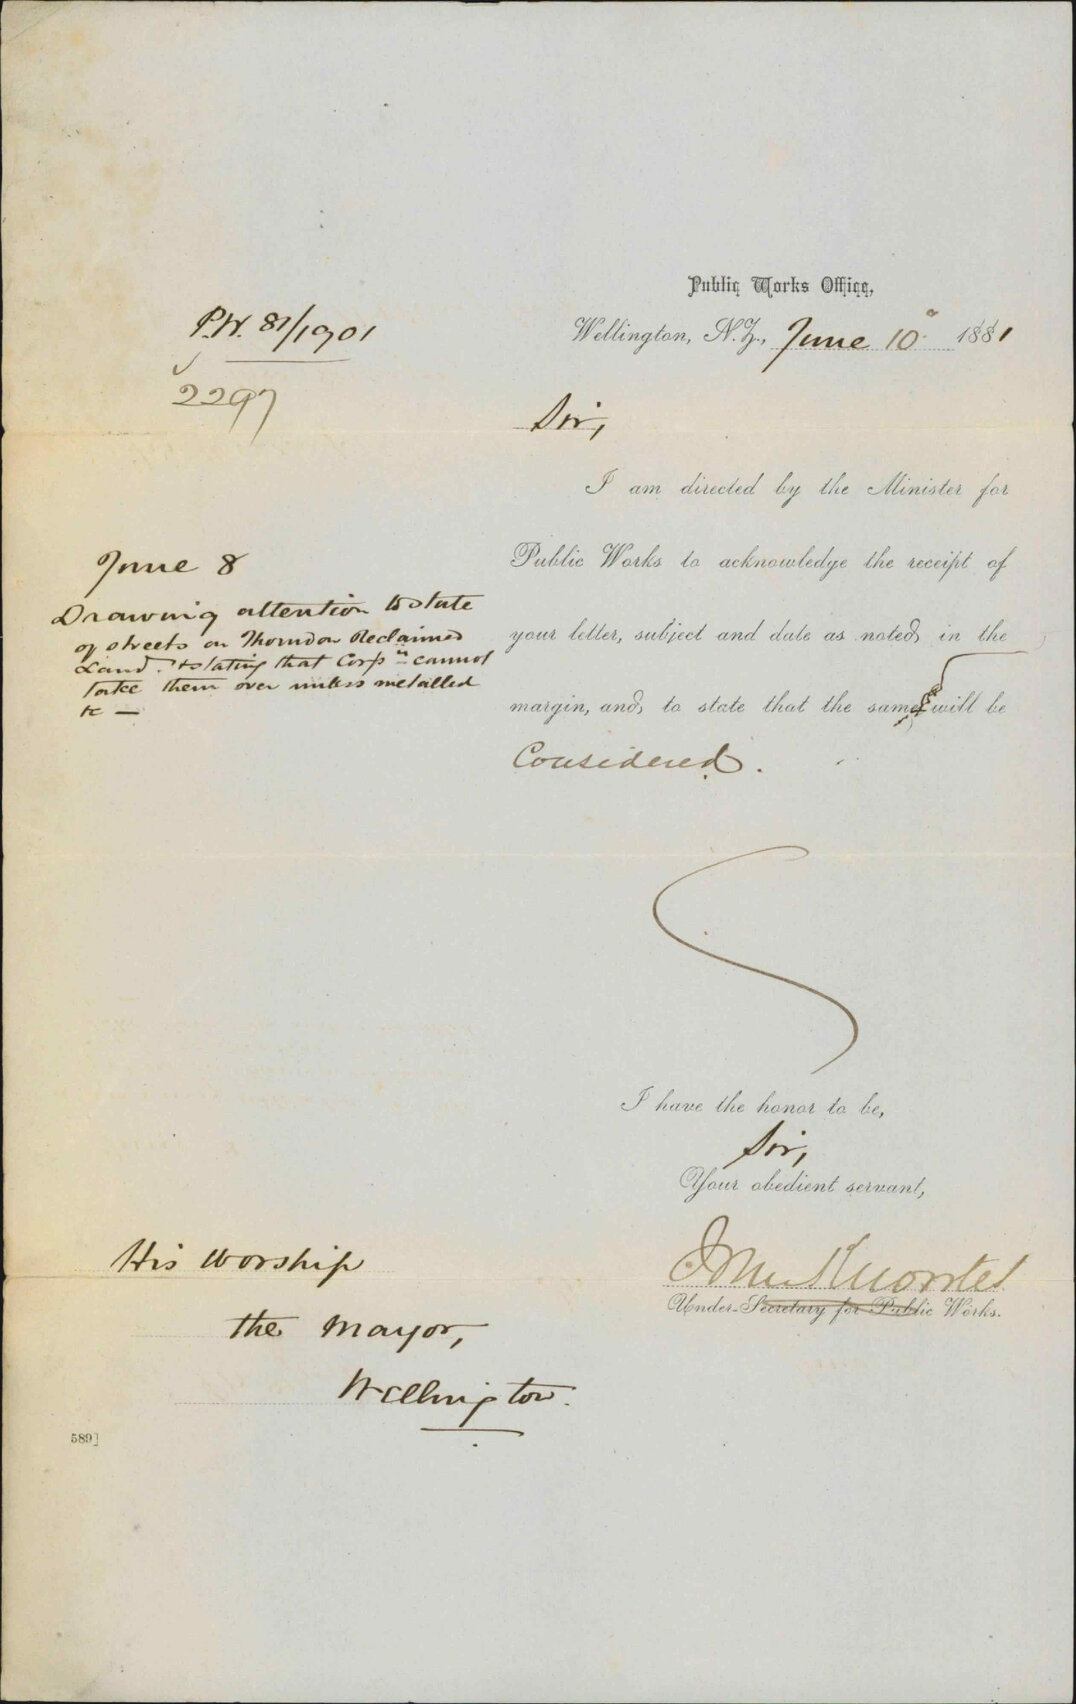 Public Works Office,
P.W. 81/1901
Wellington, N.Z., June 10 1881
2297
Sir,
I am directed by the Minister for
Public Works to acknowledge the receipt of
your letter, subject and date as noted in the
margin, and to state that the same will be
Considered.
June 8
Drawing attention to state
of streets on Thorndon Reclaimed
Land & stating that Corpn cannot
take them over unless metalled
&c —
I have the honor to be,
Sir,
Your obedient servant,
John Knowles
Under-Secretary for Public Works.
His Worship
the Mayor,
Wellington.
589]